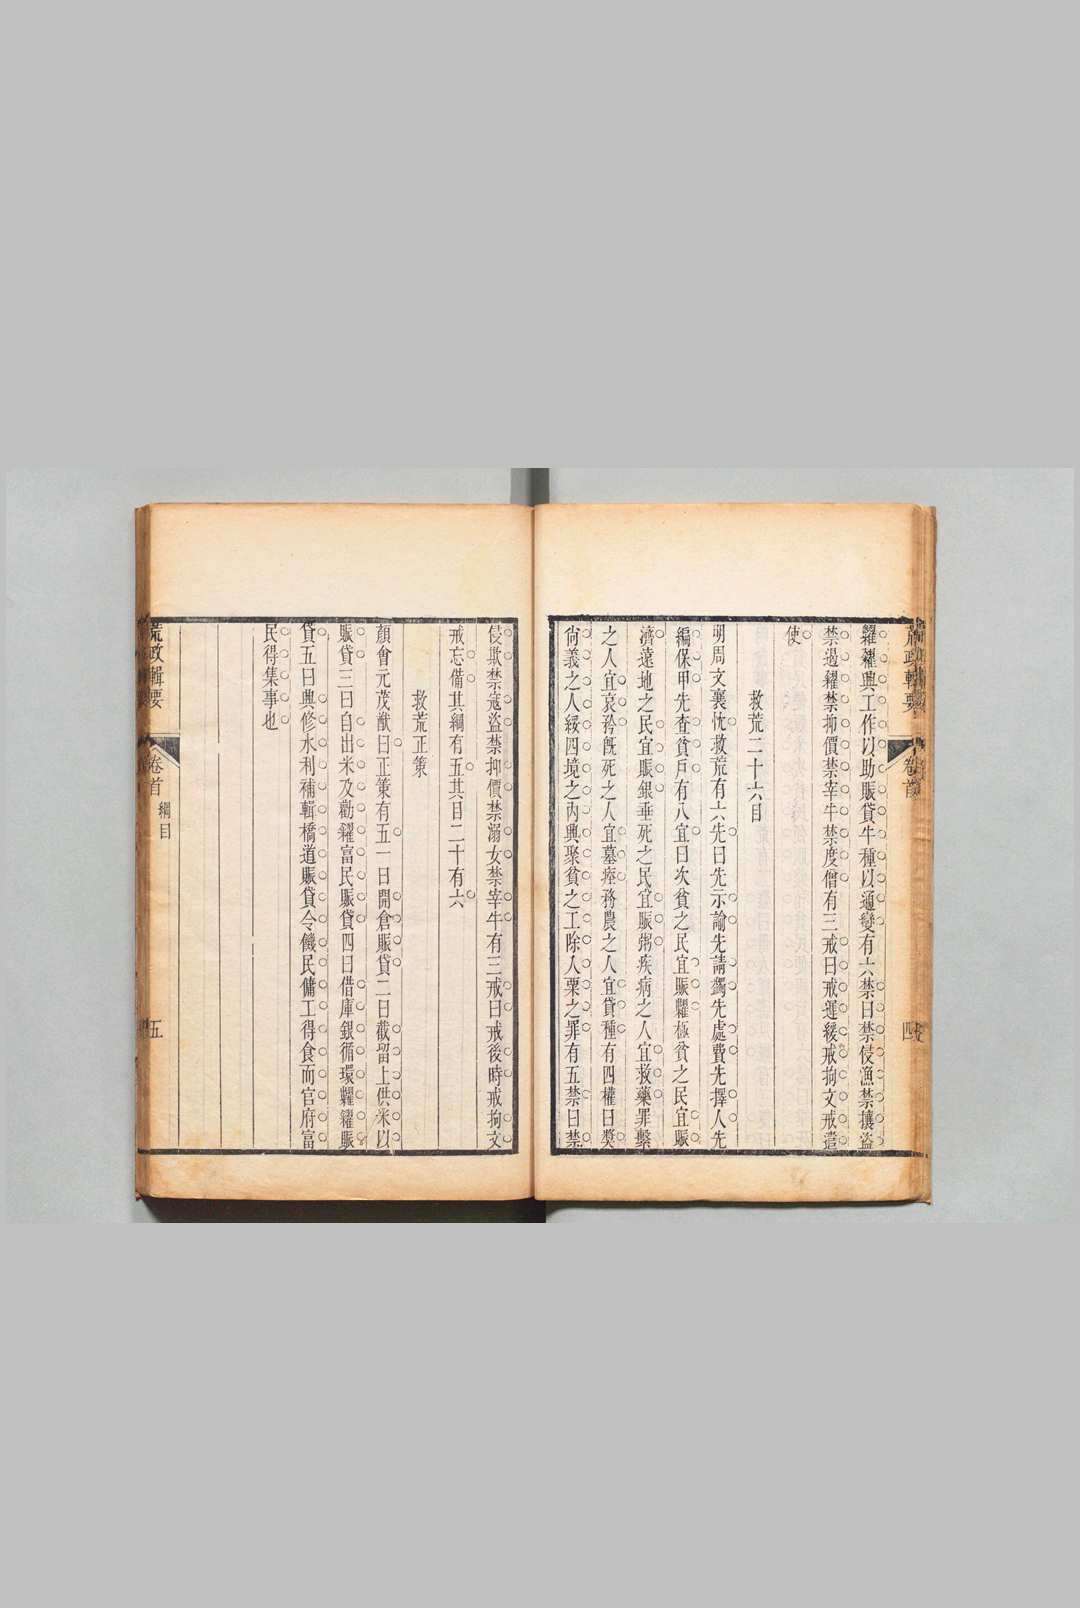 糴糶興工作以助賑貸牛種以通變有六禁曰禁侵漁禁攘盜
禁遏糴禁抑價禁宰牛禁度僧有三戒曰戒遲緩戒拘文戒遣
使
救荒二十六目
明周文襄忱救荒有六先曰先示諭先請蠲先處費先擇人先
編保甲先查貧戶有八宜曰次貧之民宜賑糶極貧之民宜賑
濟遠地之民宜賑銀垂死之民宜賑粥疾病之人宜救藥罪繫
之人宜哀矜旣死之人宜墓瘞務農之人宜貸種有四權曰獎
尙義之人綏四境之內興聚貧之工除入粟之罪有五禁曰禁
荒政輯要
卷首
四
侵欺禁寇盜禁抑價禁溺女禁宰牛有三戒曰戒後時戒拘文
戒忘備其綱有五其目二十有六
救荒正策
顏會元茂猷曰正策有五一曰開倉賑貸二曰截留上供米以
賑貸三曰自出米及勸糴富民賑貸四曰借庫銀循環糶糴賑
貸五曰興修水利補輯橋道賑貸令饑民傭工得食而官府富
民得集事也
荒政輯要
卷首
綱目
五